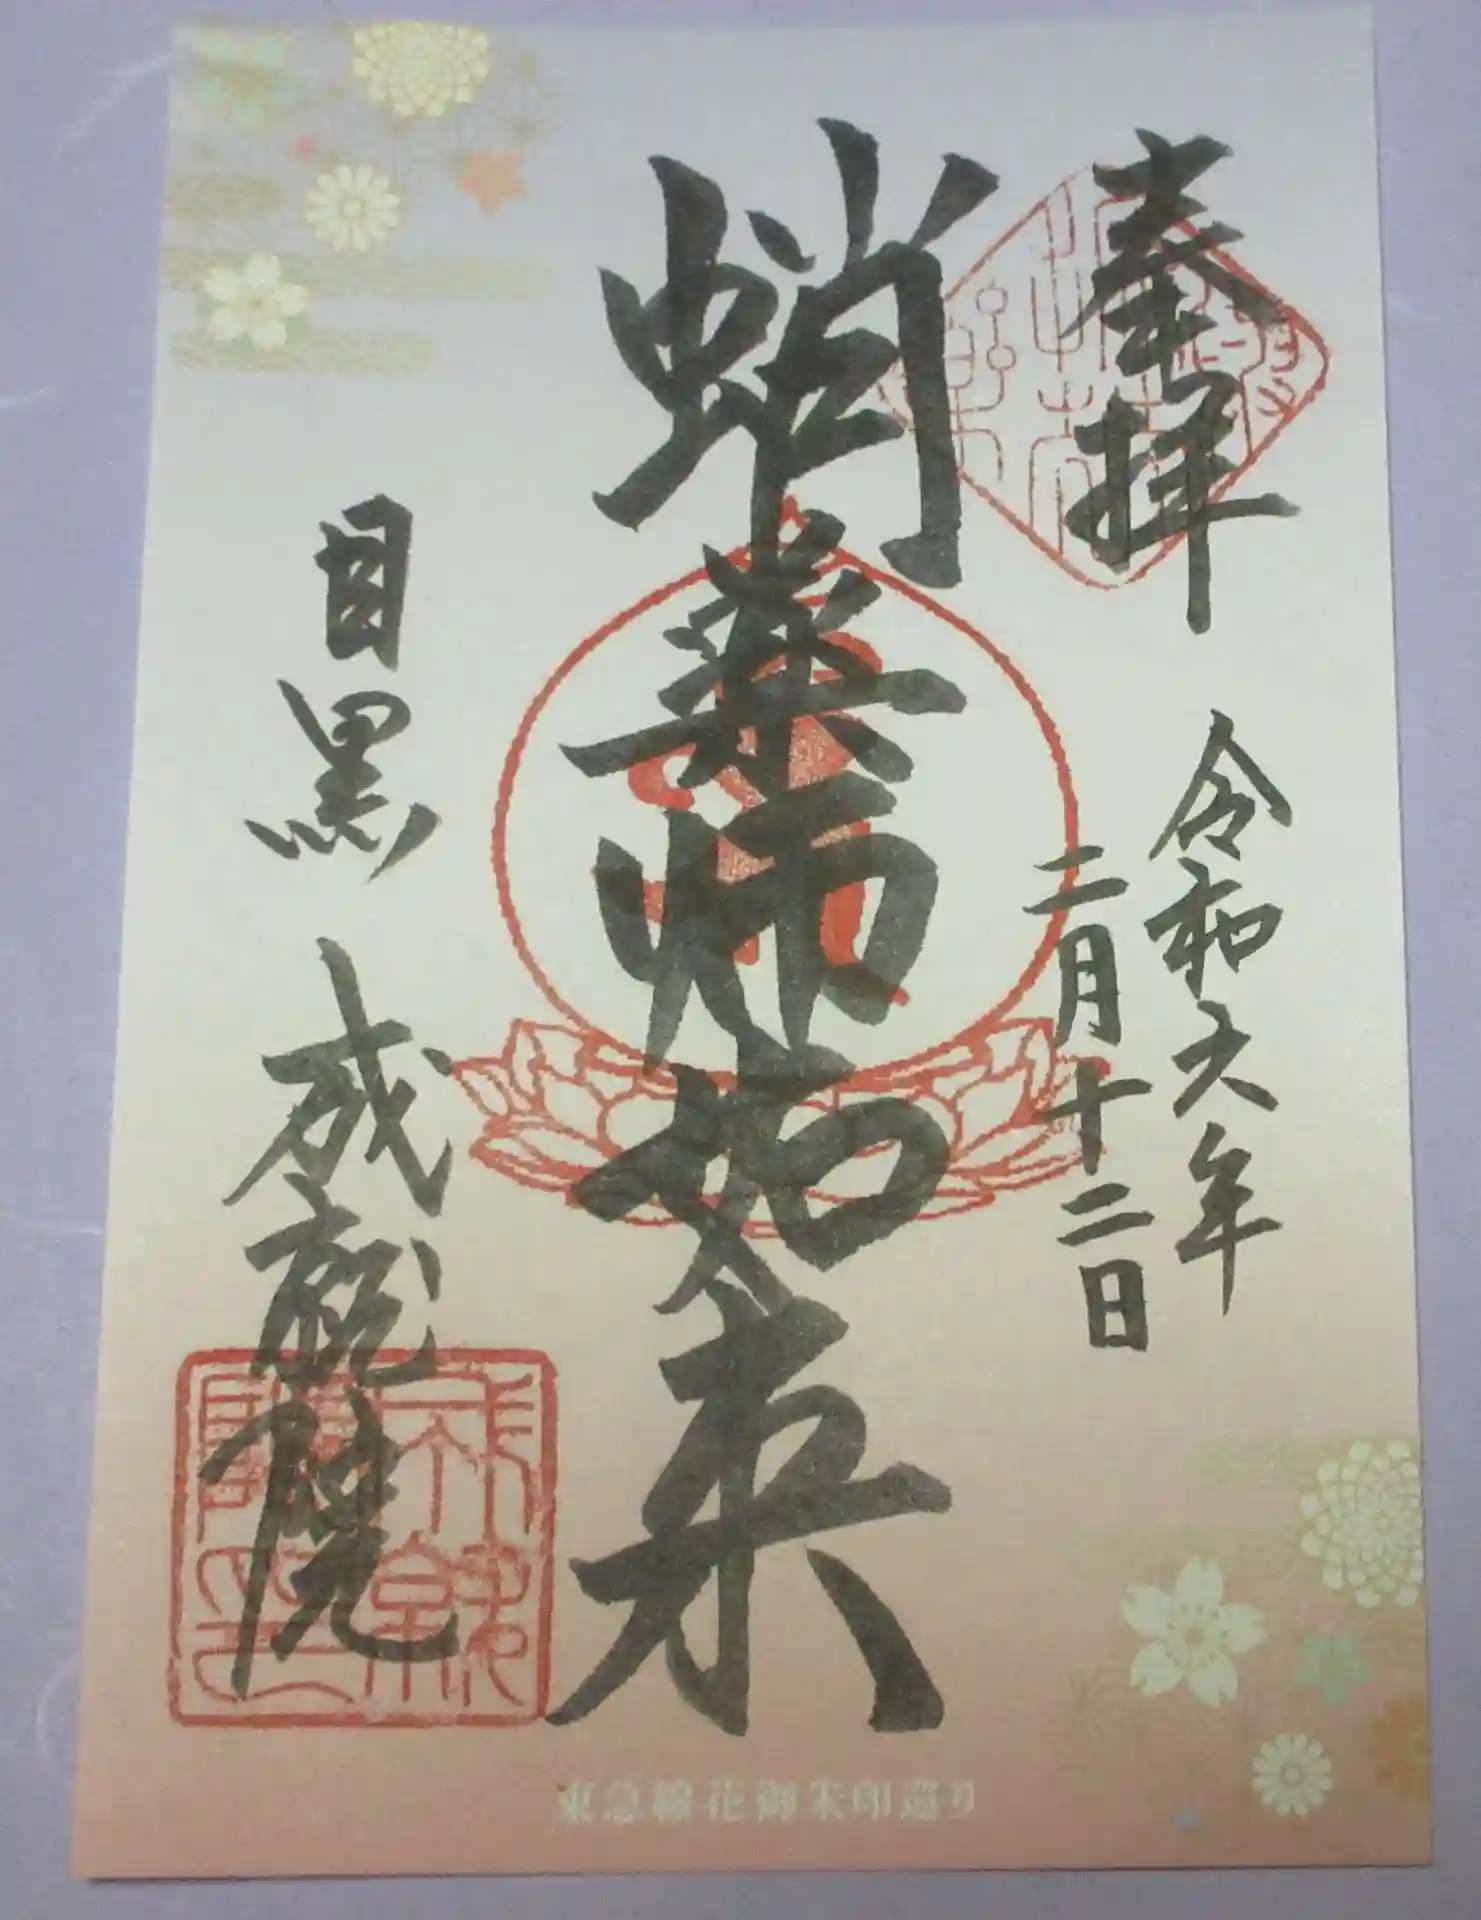 奉拝
令和六年
二月十二日
蛸薬师如来
目黒 成就院
東急線花御朱印巡り